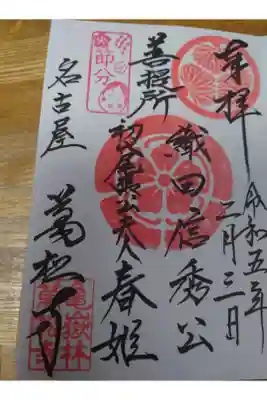 奉拝
令和五年
二月三日
織田信秀公
菩提所
夫人春姫
節分
名古屋
萬松寺
亀嶽林
萬松寺